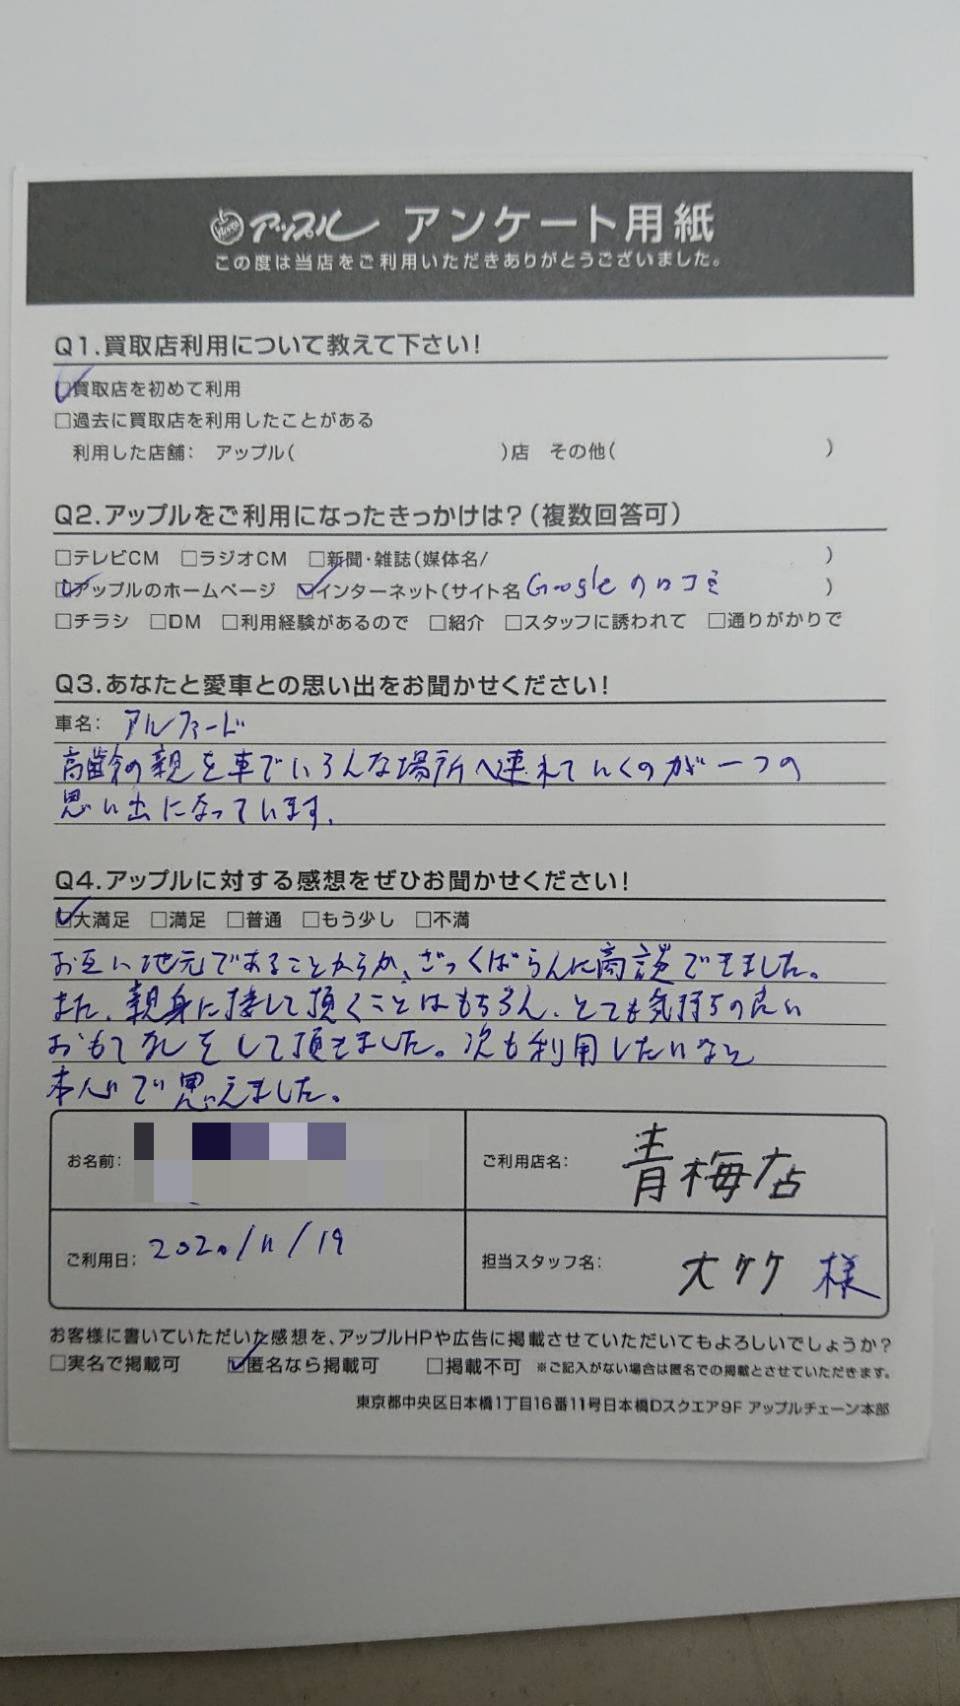 アップル アンケート用紙
この度は当店をご利用いただきありがとうございました。
Q1.買取店利用について教えて下さい!
☑買取店を初めて利用
□過去に買取店を利用したことがある
利用した店舗: アップル( )店 その他( )
Q2.アップルをご利用になったきっかけは?(複数回答可)
□テレビCM □ラジオCM □新聞・雑誌(媒体名/ )
☑アップルのホームページ ☑インターネット(サイト名 Googleの口コミ )
□チラシ □DM □利用経験があるので □紹介 □スタッフに誘われて □通りがかりで
Q3.あなたと愛車との思い出をお聞かせください!
車名: アルファード
高齢の親を車でいろんな場所へ連れていくのが一つの
思い出になっています.
Q4.アップルに対する感想をぜひお聞かせください!
☑大満足 □満足 □普通 □もう少し □不満
お互い地元であることからか、ざっくばらんに商談できました。
また、親身に接して頂くことはもちろん、とても気持ちの良い
おもてなしをして頂きました。次も利用したいなと
本心で思えました。
お名前:
ご利用店名: 青梅店
ご利用日: 2020/11/19
担当スタッフ名: 大ケケ 様
お客様に書いていただいた感想を、アップルHPや広告に掲載させていただいてもよろしいでしょうか?
□実名で掲載可 ☑匿名なら掲載可 □掲載不可 ※ご記入がない場合は匿名での掲載とさせていただきます。
東京都中央区日本橋1丁目16番11号日本橋Dスクエア9F アップルチェーン本部